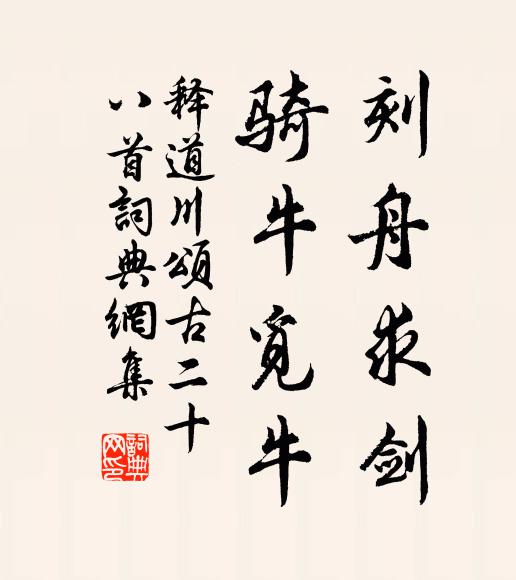 刻舟求剑
骑牛觅牛
释道川颂古二十
八首詞典網集
詞典網印